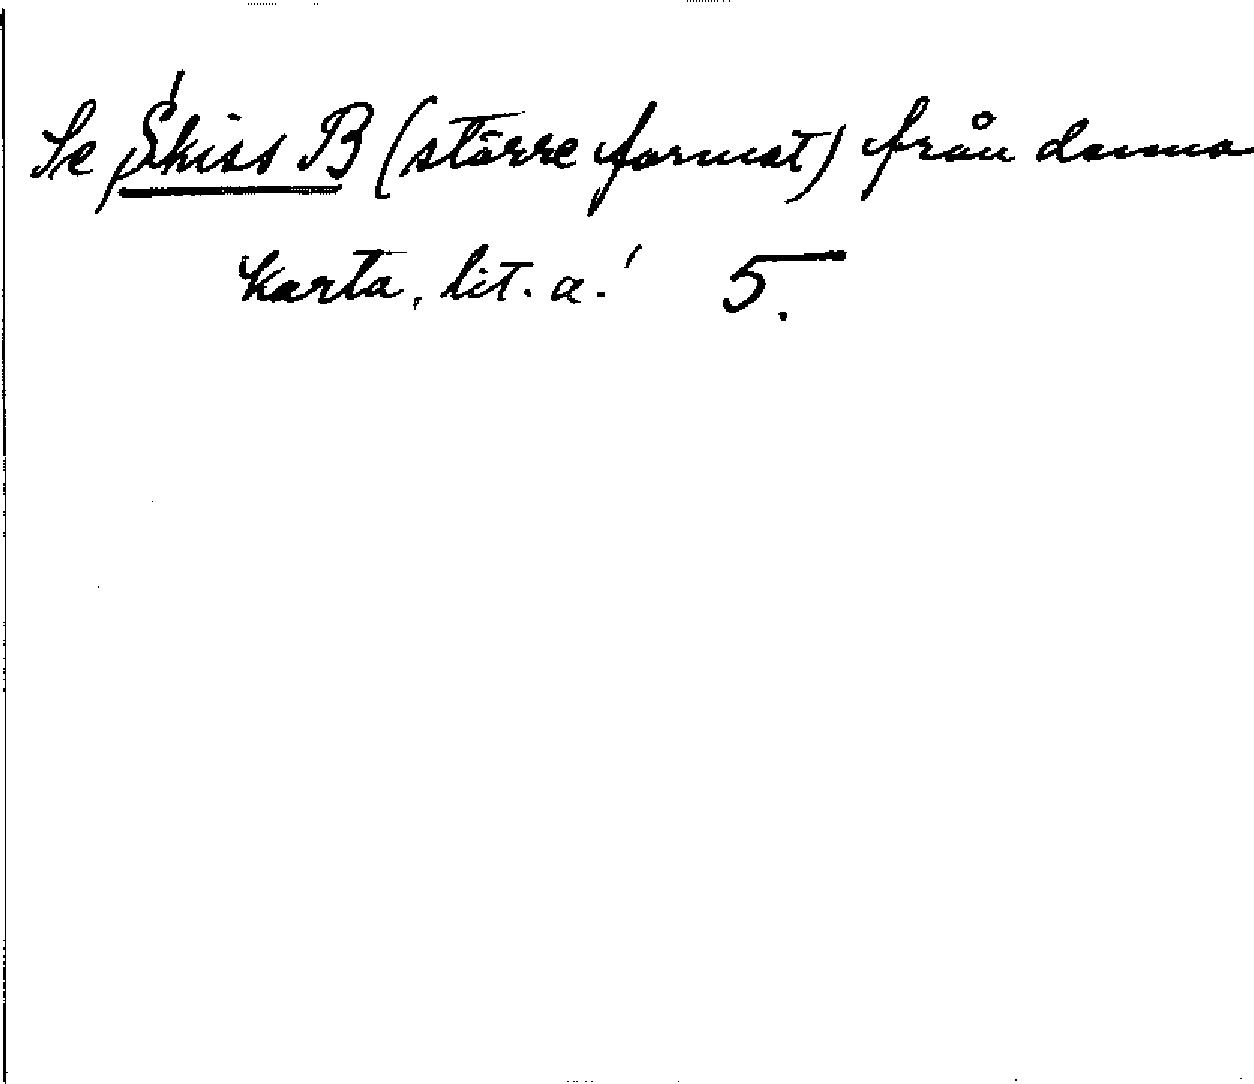 Se Skiss B (större format) från denna
karta, lit. a.! 5.